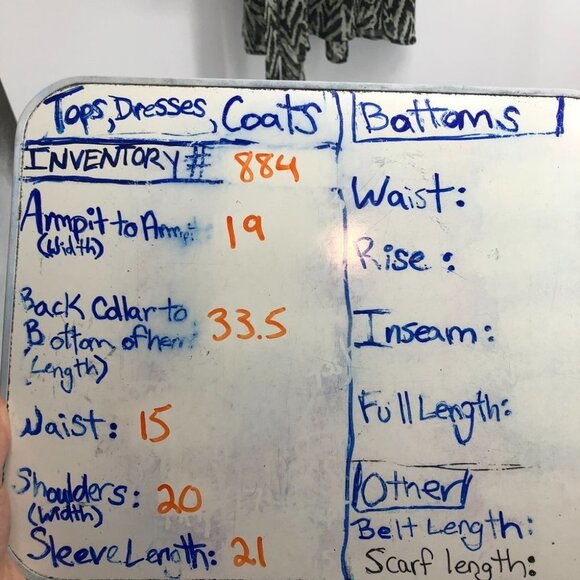 Tops, Dresses, Coats
INVENTORY # 884
Armpit to Armpit 19
(Width)
Back Collar to
Bottom of hem 33.5
(Length)
Waist: 15
Shoulders: 20
(Width)
Sleeve Length: 21
Bottoms
Waist:
Rise:
Inseam:
Full Length:
Other
Belt Length:
Scarf length: